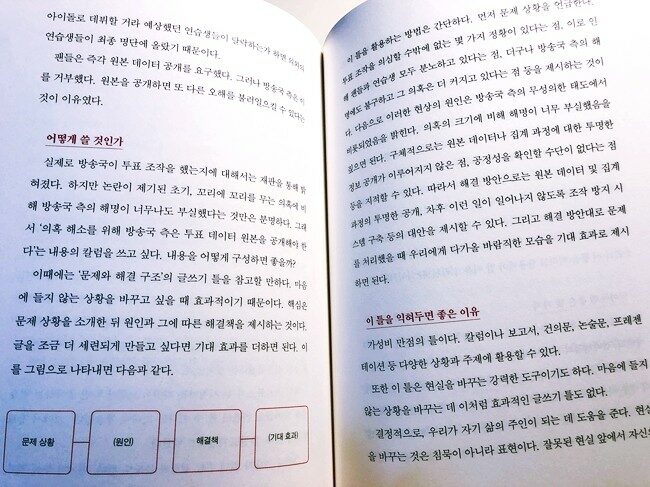 아이돌로 데뷔할 거라 예상했던 연습생들이 탈락하는가 하면 의외의
연습생들이 최종 명단에 올랐기 때문이다.
팬들은 즉각 원본 데이터 공개를 요구했다. 그러나 방송국 측은 이
를 거부했다. 원본을 공개하면 또 다른 오해를 불러일으킬 수 있다는
것이 이유였다.
어떻게 쓸 것인가
실제로 방송국이 투표 조작을 했는지에 대해서는 재판을 통해 밝
혀졌다. 하지만 논란이 제기된 초기, 꼬리에 꼬리를 무는 의혹에 비
해 방송국 측의 해명이 너무나도 부실했다는 것만은 분명하다. 그래
서 '의혹 해소를 위해 방송국 측은 투표 데이터 원본을 공개해야 한
다'는 내용의 칼럼을 쓰고 싶다. 내용을 어떻게 구성하면 좋을까?
이때에는 '문제와 해결 구조'의 글쓰기 틀을 참고할 만하다. 마음
에 들지 않는 상황을 바꾸고 싶을 때 효과적이기 때문이다. 핵심은
문제 상황을 소개한 뒤 원인과 그에 따른 해결책을 제시하는 것이다.
글을 조금 더 세련되게 만들고 싶다면 기대 효과를 더하면 된다. 이
를 그림으로 나타내면 다음과 같다.
문제 상황
(원인)
해결책
(기대 효과)
이 틀을 활용하는 방법은 간단하다. 먼저 문제 상황을 언급한다.
투표 조작을 의심할 수밖에 없는 몇 가지 정황이 있다는 점, 이로 인
해 팬들과 연습생 모두 분노하고 있다는 점, 더구나 방송국 측의 해
명에도 불구하고 그 의혹은 더 커지고 있다는 점 등을 제시하는 것이
다. 다음으로 이러한 현상의 원인은 방송국 측의 무성의한 태도에서
비롯되었음을 밝힌다. 의혹의 크기에 비해 해명이 너무 부실했음을
짚으면 된다. 구체적으로는 원본 데이터나 집계 과정에 대한 투명한
정보 공개가 이루어지지 않은 점, 공정성을 확인할 수단이 없다는 점
등을 지적할 수 있다. 따라서 해결 방안으로는 원본 데이터 및 집계
과정의 투명한 공개, 차후 이런 일이 일어나지 않도록 조작 방지 시
스템 구축 등의 대안을 제시할 수 있다. 그리고 해결 방안대로 문제
를 처리했을 때 우리에게 다가올 바람직한 모습을 기대 효과로 제시
하면 된다.
이 틀을 익혀두면 좋은 이유
가성비 만점의 틀이다. 칼럼이나 보고서, 건의문, 논술문, 프레젠
테이션 등 다양한 상황과 주제에 활용할 수 있다.
또한 이 틀은 현실을 바꾸는 강력한 도구이기도 하다. 마음에 들지
않는 상황을 바꾸는 데 이처럼 효과적인 글쓰기 틀도 없다.
결정적으로, 우리가 자기 삶의 주인이 되는 데 도움을 준다. 현실
을 바꾸는 것은 침묵이 아니라 표현이다. 잘못된 현실 앞에서 자신